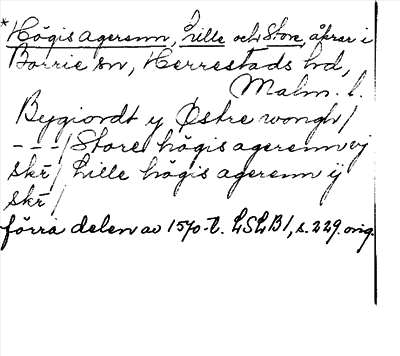 *Högis agerenn, Lille och Store, åkrar i
Borrie sn, Herrestads hd,
Malm. l.
Bygiordt y Østre wongh/
- - -/ Store högis agerenn vj
skr̄/ Lille högis agerenn ij
skr̄/
förra delen av 1570-t. LSLB1, s. 229. orig.